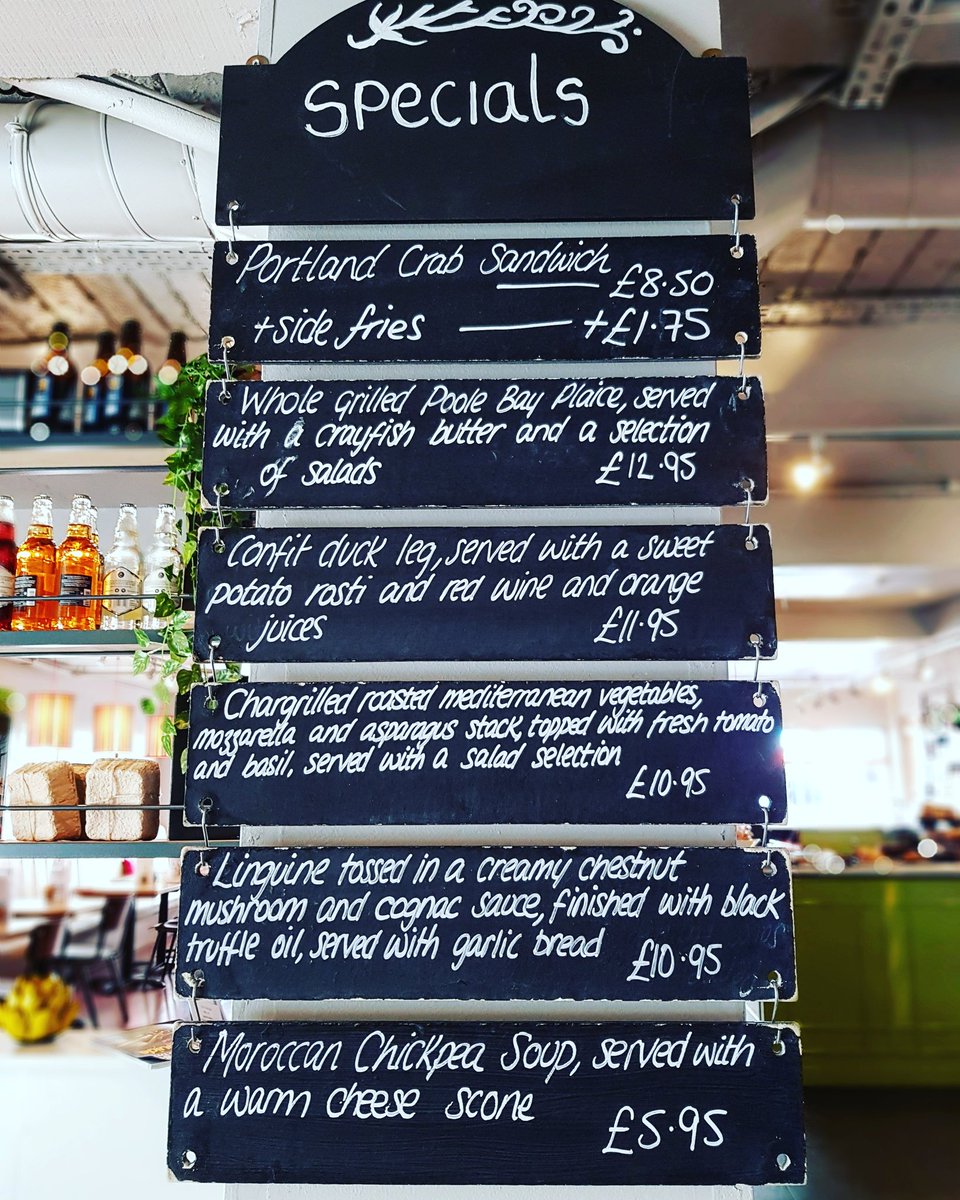 Specials
Portland Crab Sandwich
£8.50
+side fries +£1.75
Whole grilled Poole Bay Plaice, served
with a crayfish butter and a selection
of salads £12.95
Confit duck leg, served with a sweet
potato rosti and red wine and orange
juices £11.95
Chargrilled roasted mediterranean vegetables,
mozzarella and asparagus stack, topped with fresh tomato
and basil, served with a salad selection
£10.95
Linguine tossed in a creamy chestnut
mushroom and cognac sauce, finished with black
truffle oil, served with garlic bread £10.95
Moroccan Chickpea Soup, served with
a warm cheese scone
£5.95